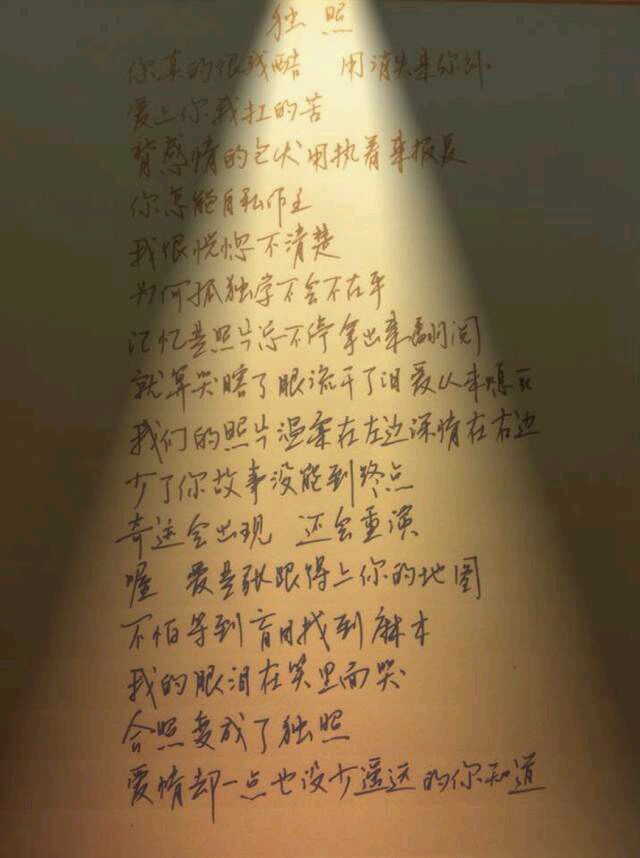 独照
你真的很残酷 用消失来弥补
爱上你我扛的苦
背感情的包伏用执着来报复
你怎能自私作主
我很恍惚不清楚
为何孤独学不会不在乎
记忆是照片忘不停拿出来翻阅
就算哭瞎了眼流干了泪爱从来填
我们的照片温柔在左边深情在右边
少了你故事没能到终点
奇迹会出现 还会重演
喔 爱是张跟得上你的地图
不怕等到盲目找到麻木
我的眼泪在笑里面哭
合照变成了独照
爱情却一点也没少遥远的你知道